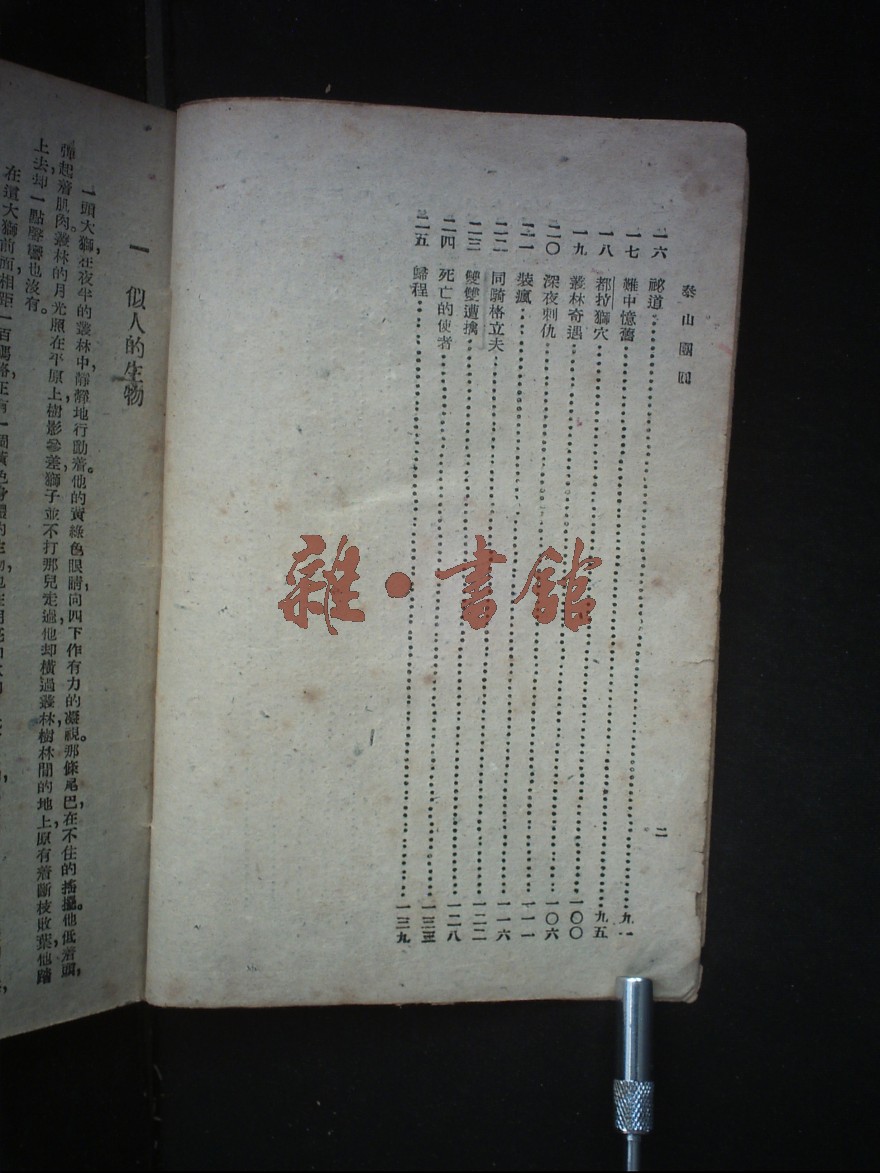 泰山團圓
二
一六 祕道
一七 難中憶舊 九一
一八 都拉獅穴 九五
一九 叢林奇遇 一〇〇
二〇 深夜刺仇 一〇六
二一 裝瘋 一一一
二二 同騎格立夫 一一六
二三 雙雙遭擒 一二二
二四 死亡的使者 一二八
二五 歸程 一三九
雜·書館
一 似人的生物
一頭大獅在夜半的叢林中,靜靜地行動着。他的黃綠色眼睛,向四下作有力的凝視。那條尾巴,在不住的搖擺。他低着頭,
彈起着肌肉。叢林的月光,照在平原上,樹影參差,獅子並不打那兒走過,他却橫過叢林。樹林間的地上,原有着斷枝敗葉,他踏
上去,却一點聲響也沒有。
在這大獅前面,相距一百碼